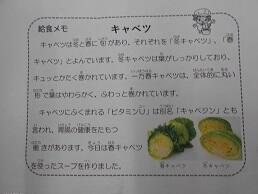 給食メモ
キャベツ
キャベツは冬と春に旬があり、それぞれを「冬キャベツ」、「春
キャベツ」とよんでいます。冬キャベツは葉がしっかりしており、
キュッとかたく巻かれています。一方春キャベツは、全体的に丸い
形で葉はやわらかく、ふわっと巻かれています。
キャベツにふくまれる「ビタミンU」は別名「キャベジン」とも
言われ、胃腸の健康をたもつ
働きがあります。今日は春キャベツ
を使ったスープを作りました。
春キャベツ
冬キャベツ